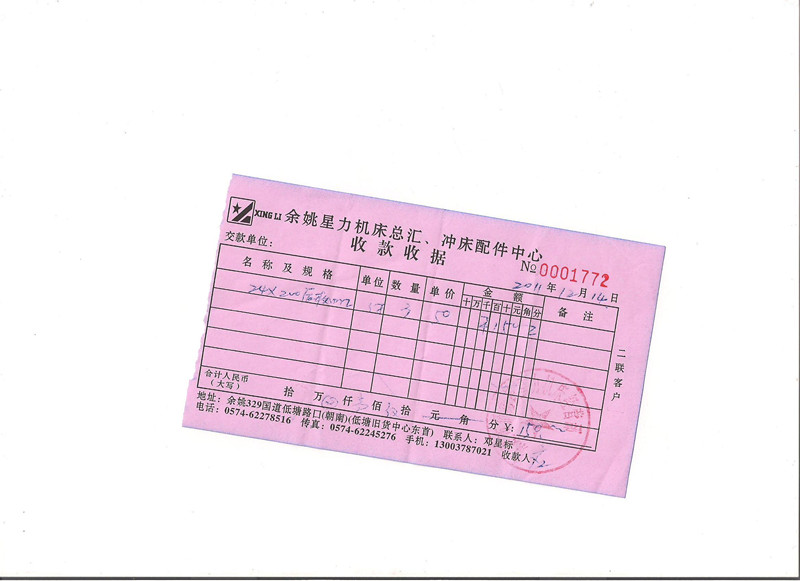 XING LI 余姚星力机床总汇、冲床配件中心
收款收据
№0001772
交款单位:
2011年12月14日
名称及规格 单位 数量 单价 金额 备注
十万千百十元角分
24X200 3 50
二联客户
合计人民币(大写) 拾 万 仟 佰 拾 元 角 分 ¥: 150
地址: 余姚329国道低塘路口(朝南)(低塘旧货中心东首) 联系人: 邓星标
电话: 0574-62278516 传真: 0574-62245276 手机: 13003787021 收款人: